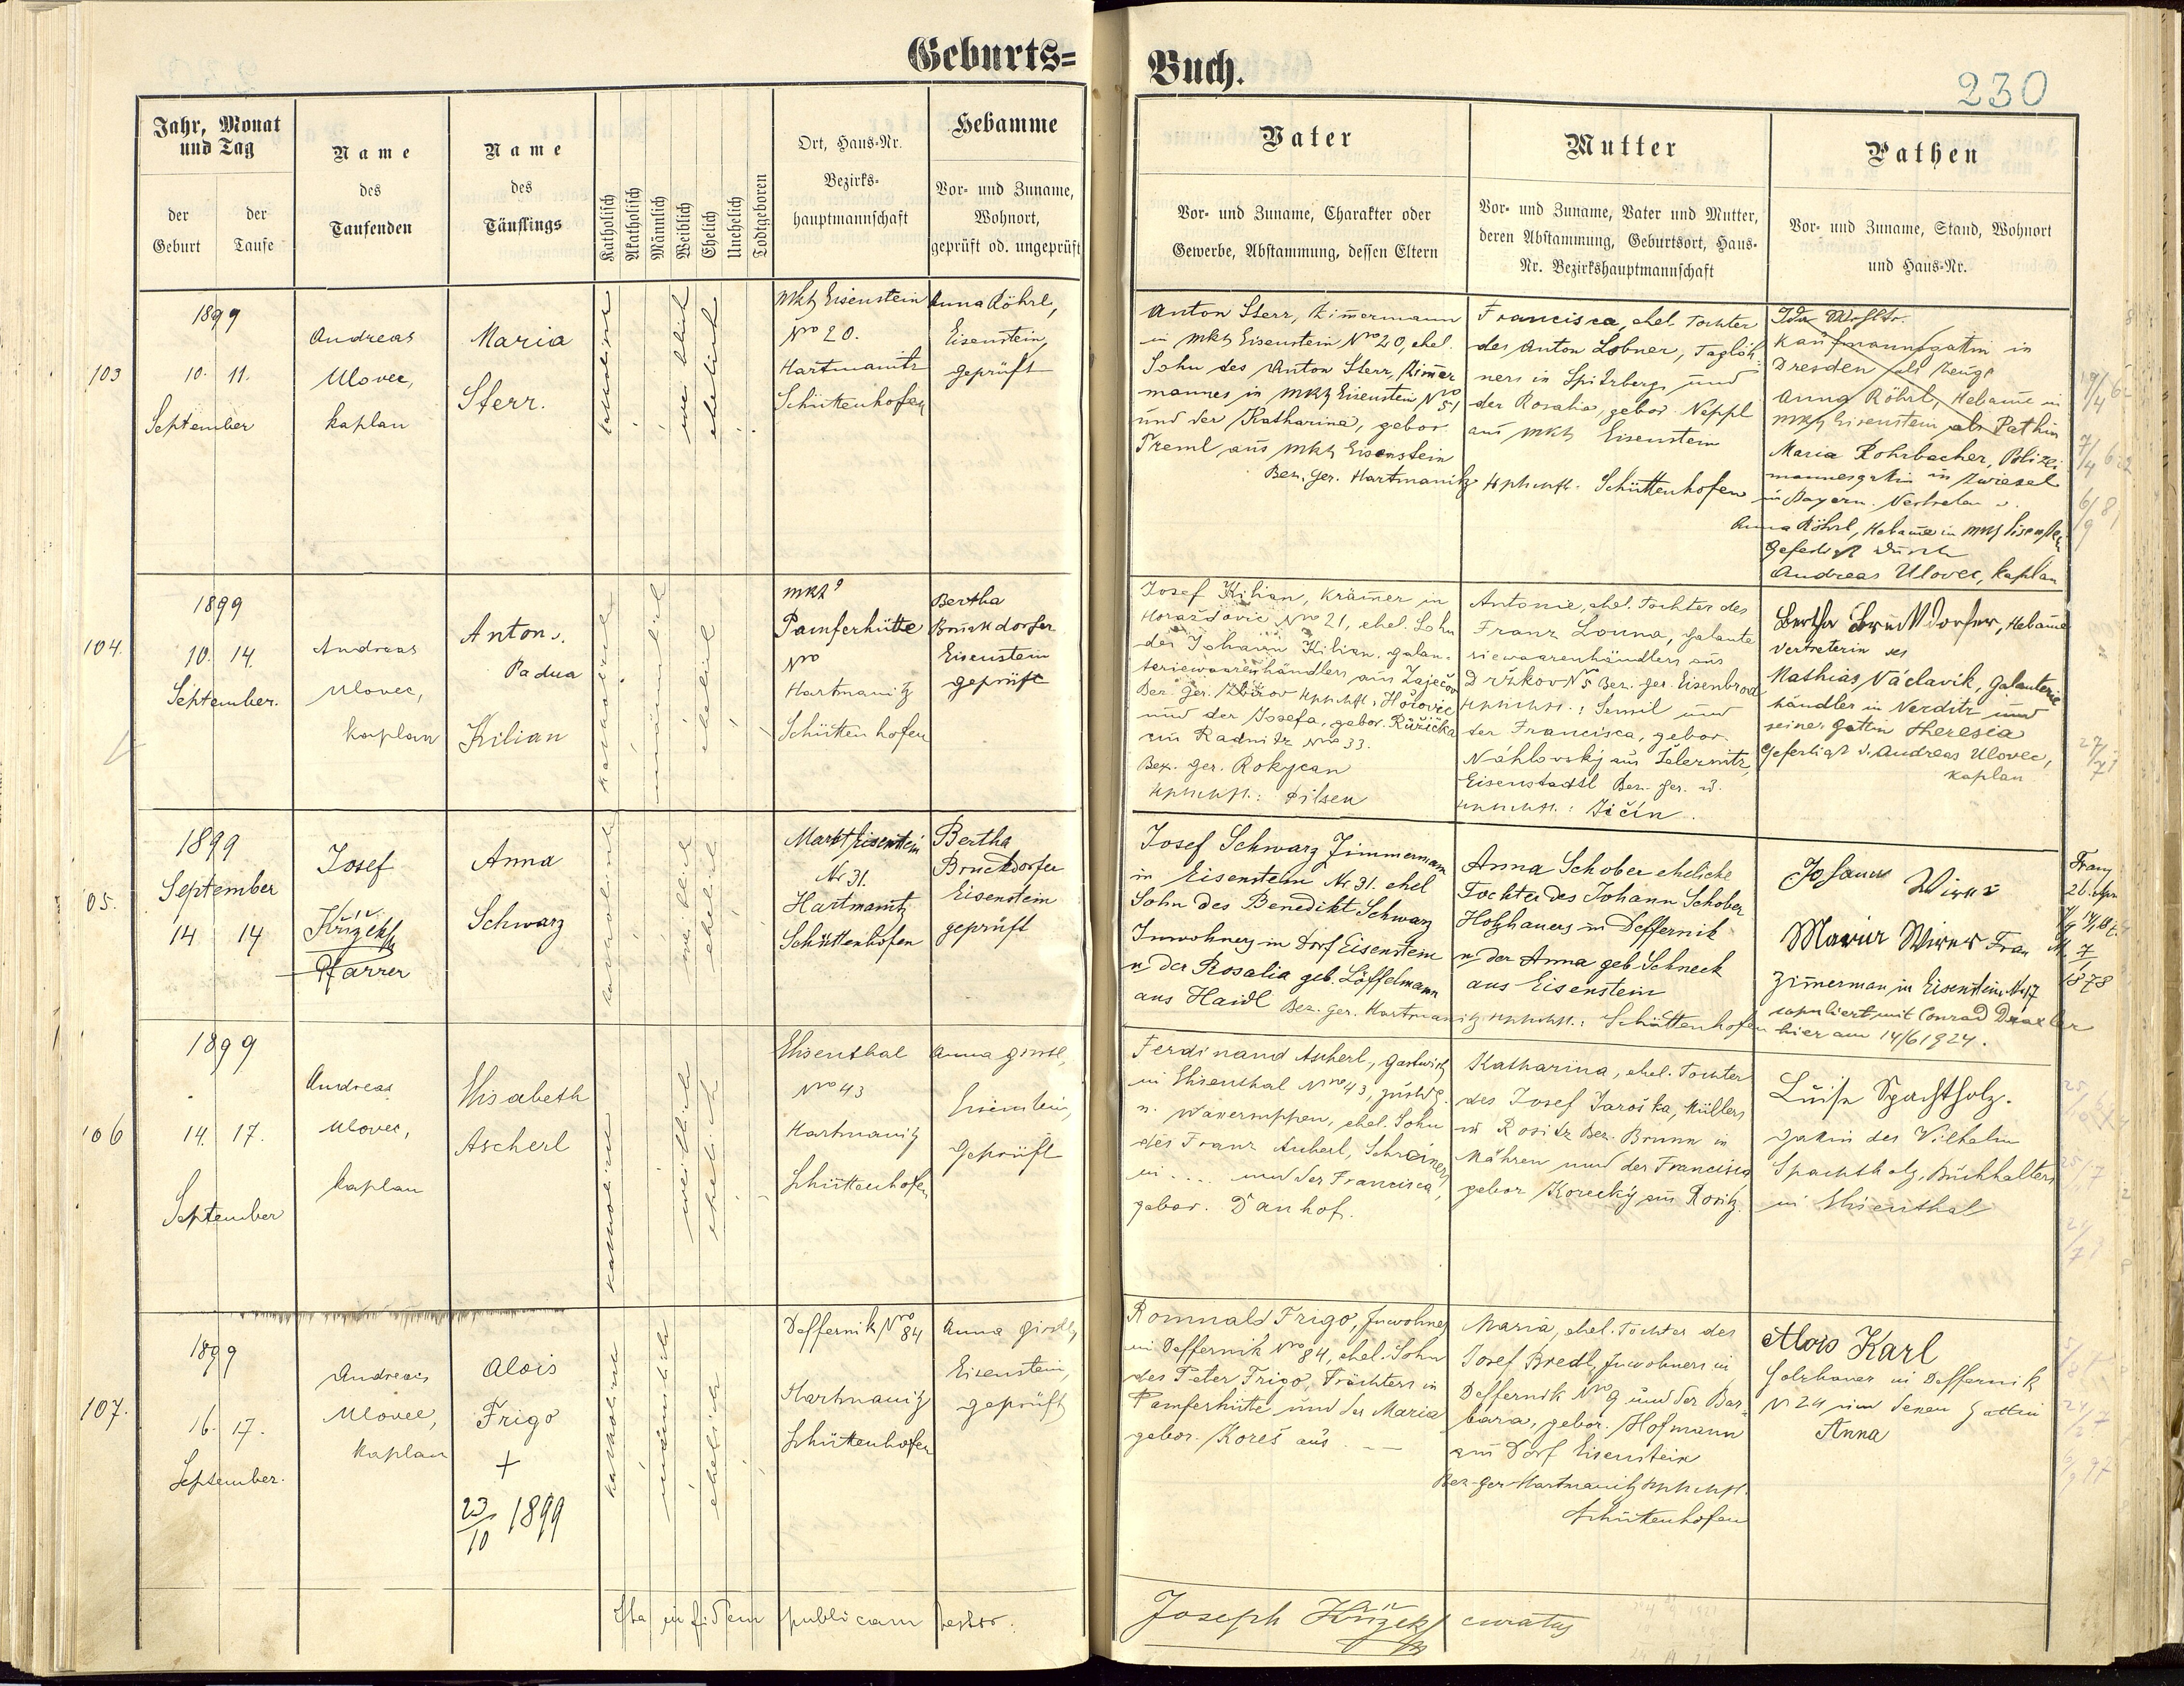 Geburts=
Buch.
230
Jahr, Monat
und Tag
der
Geburt
der
Taufe
Name
des
Taufenden
Name
des
Täuflings
Katholisch
Akatholisch
Männlich
Weiblich
Ehelich
Unehelich
Todtgeboren
Ort, Haus=Nr.
Bezirks=
hauptmannschaft
Hebamme
Vor= und Zuname,
Wohnort,
geprüft od. ungeprüft
Vater
Vor= und Zuname, Charakter oder
Gewerbe, Abstammung, dessen Eltern
Mutter
Vor= und Zuname, Vater und Mutter,
deren Abstammung, Geburtsort, Haus=
Nr. Bezirkshauptmannschaft
Pathen
Vor= und Zuname, Stand, Wohnort
und Haus=Nr.
103
1899
10. 11.
September
Andreas
Ulovec,
kaplan
Maria
Sterr.
katholisch
weiblich
ehelich
Mkt Eisenstein
Nro 20.
Hartmanitz
Schüttenhofen
Anna Röhrl,
Eisenstein,
geprüft
Anton Sterr, Zimermann
in Mkt Eisenstein Nro 20, ehel.
Sohn des Anton Sterr, Zimer
mannes in Mkt Eisenstein Nro 51
und der Katharina, gebor.
Treml aus Mkt Eisenstein
Bez. Ger. Hartmanitz Hptmsft. Schüttenhofen
Francisca, ehel. Tochter
des Anton Lobner, Taglöh-
ners in Spitzberg und
der Rosalia, gebor. Neppl
aus Mkt Eisenstein
Kaufmannsgattin in
Dresden als Zeuge
Anna Röhrl, Hebame in
Mkt Eisenstein als Pathin
Maria Rohrbacher, Polizei
mannesgattin in Zwiesel
in Bayern. Vertreten d.
Anna Röhrl, Hebame in Mkt Eisenstein
Gefertigt durch
Andreas Ulovec, kaplan
104.
1899
10. 14.
September.
Andreas
Ulovec,
kaplan
Anton v.
Padua
Kilian
katholisch
männlich
ehelich
Mkt
Pamferhütte
Nro
Hartmanitz
Schüttenhofen
Bertha
Bruckdorfer
Eisenstein
geprüft
Josef Kilian, Krämer in
Horažďovic Nro 21, ehel. Sohn
des Johann Kilian, galan-
teriewaarenhändlers aus Zaječov
Bez. Ger. Zbirov Hptmsft. Hořovic
und der Josefa, gebor. Růžička
aus Radnitz Nro 33.
Bez. Ger. Rokycan
Hptmsft.: Pilsen
Antonie, ehel. Tochter des
Franz Louna, Galante
riewaarenhändlers aus
Držkov N 5 Bez. Ger. Eisenbrod
Hptmsft.: Semil und
der Francisca, gebor.
Náhlovský aus
Eisenstadtl Bez. Ger. u.
Hptmsft.: Jičín.
Bertha Bruckdorfer, Hebame
Vertreterin des
Mathias Václavik, Galanterie
händler in Verditz und
seiner Gattin Theresia
Gefertigt d. Andreas Ulovec,
kaplan
105.
1899
September
14 14
Josef
Křížek
Pfarrer
Anna
Schwarz
katholisch
weiblich
ehelich
Markt Eisenstein
Nr 31.
Hartmanitz
Schüttenhofen
Bertha
Bruckdorfer
Eisenstein
geprüft
Josef Schwarz Zimmermann
in Eisenstein Nr 31. ehel
Sohn des Benedikt Schwarz
Inwohners in Dorf Eisenstein
u. der Rosalia geb. Löffelmann
aus Haidl Bez. Ger. Hartmanitz Hptmsft.: Schüttenhofen
Anna Schober eheliche
Tochter des Johann Schober
Holzhauers in Deffernik
u. der Anna geb. Schneck
aus Eisenstein
Zimerman in Eisenstein Nr 17
copuliert mit Conrad Draxler
hier am 14/6 1924.
1878
106
1899
14. 17.
September
Andreas
Ulovec,
kaplan
Elisabeth
Ascherl
katholisch
weiblich
ehelich
Elisenthal
Nro 43
Hartmanitz
Schüttenhofen
Eisenstein,
Geprüft
Ferdinand Ascherl, Gastwirth
in Elisenthal Nro 43, zustdg.
n. ehel. Sohn
des Franz Ascherl, Schreiners
in .... und der Francisca,
gebor. Danhof.
Katharina, ehel. Tochter
des Josef Jaroška, Müllers
in Rositz Bez. Brunn in
Mähren und der Francisca
gebor Korecký aus Rositz.
Luise Spachtholz.
Gattin des Wilhelm
Spachtholz, Buchhalters
in Elisenthal
107.
1899
16. 17.
September.
Andreas
Ulovec,
kaplan
Alois
Frigo
+
23/10 1899
katholisch
männlich
ehelich
Deffernik Nro 84
Hartmanitz
Schüttenhofen
Eisenstein,
geprüft
Romuald Frigo, Inwohner
in Deffernik Nro 84, ehel. Sohn
des Peter Frigo, Trächters in
Pamferhütte und der Maria
gebor. Koreš aus
Maria, ehel. Tochter des
Josef Bredl, Inwohners in
Deffernik Nro 9 und der Bar-
bara, gebor. Hofmann
aus Dorf Eisenstein
Bez-Ger-Hartmanitz Hptmsft.
Schüttenhofen
Alois Karl
Holzhauer in Deffernik
N 24 und dessen Gattin
Anna
Ita in fidem publicam testor.
Joseph Křížek curatus